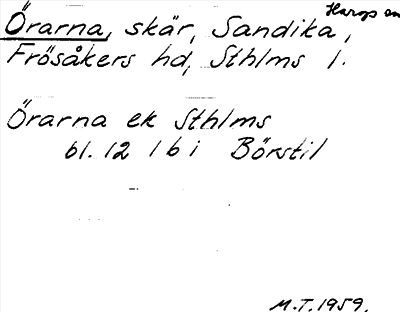 Hargs
Örarna, skär, Sandika,
Frösåkers hd, Sthlms l.
Örarna ek Sthlms
bl. 12 1 b i Börstil
M.T. 1959.